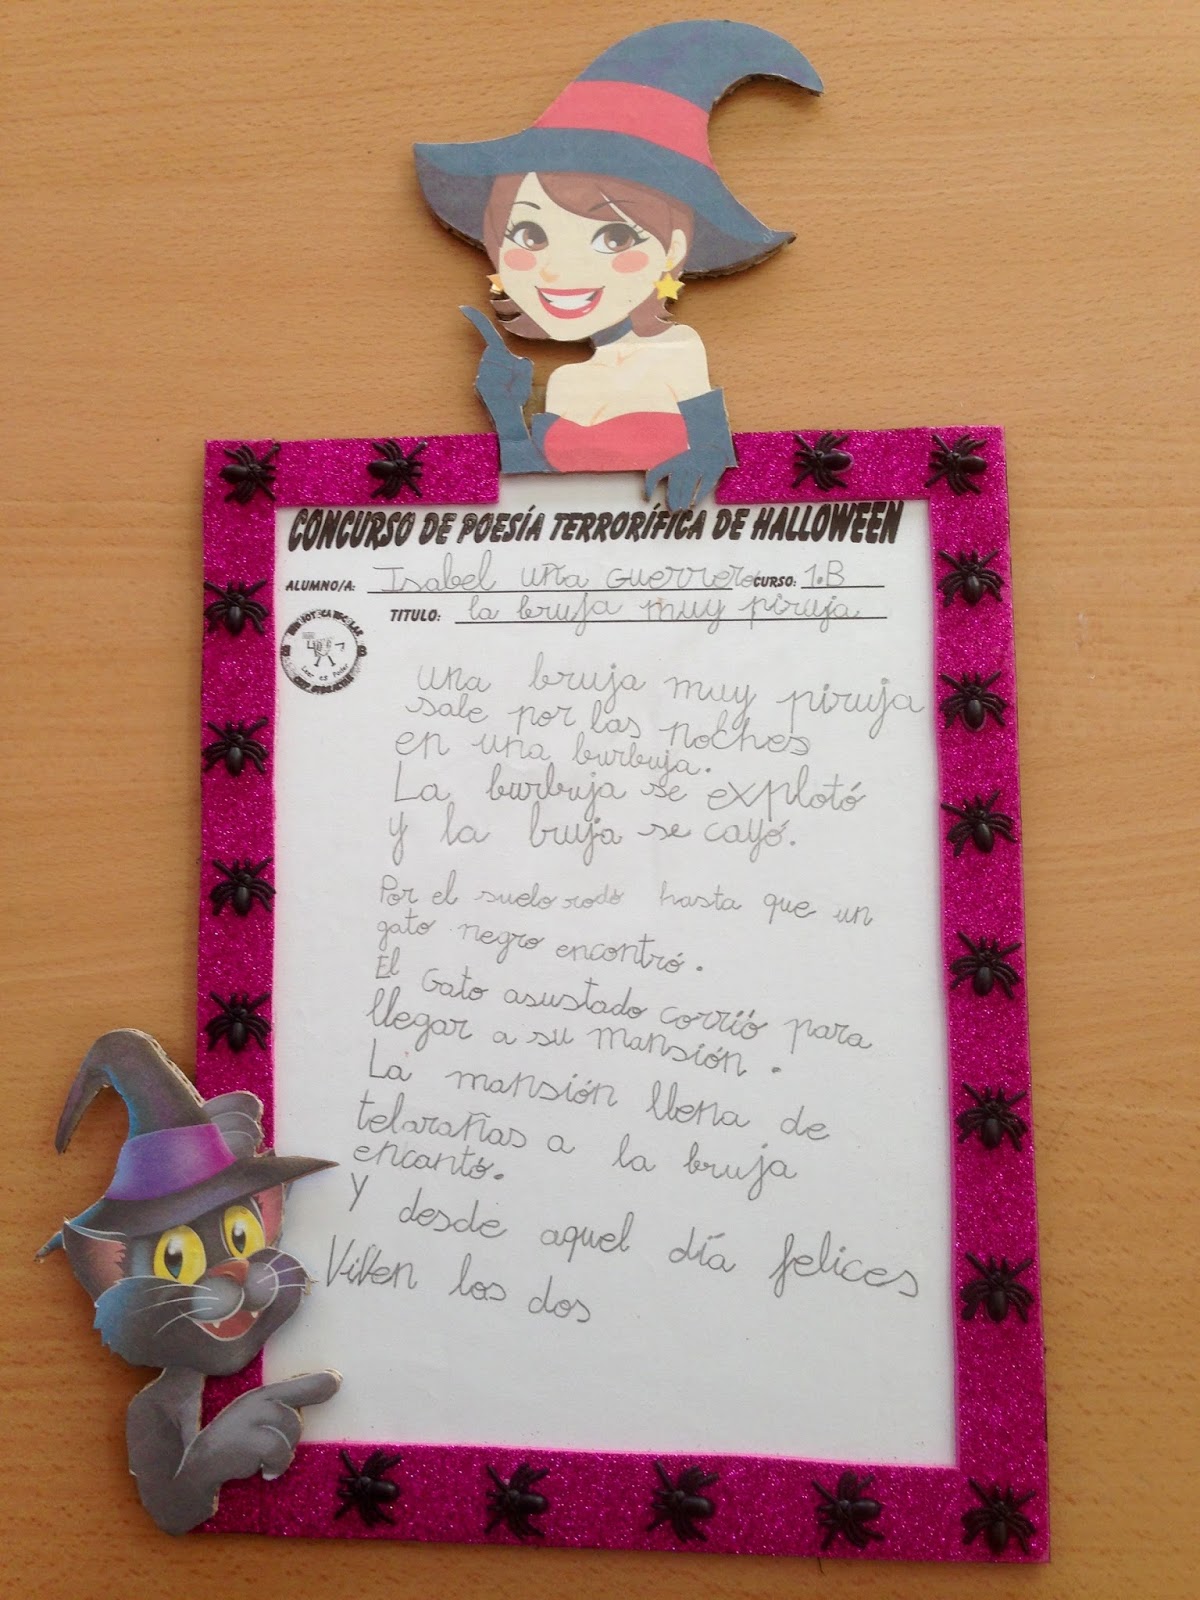 CONCURSO DE POESÍA TERRORÍFICA DE HALLOWEEN
ALUMNO/A: Isabel uña Guerrero CURSO: 1.B
TITULO: la bruja muy piruja
Leer es Poder
una bruja muy piruja
sale por las noches
en una burbuja.
La burbuja se explotó
y la bruja se cayó.
Por el suelo rodó hasta que un
gato negro encontró.
El Gato asustado corrió para
llegar a su mansión.
La mansión llena de
telarañas a la bruja
encantó.
Y desde aquel día felices
Viven los dos